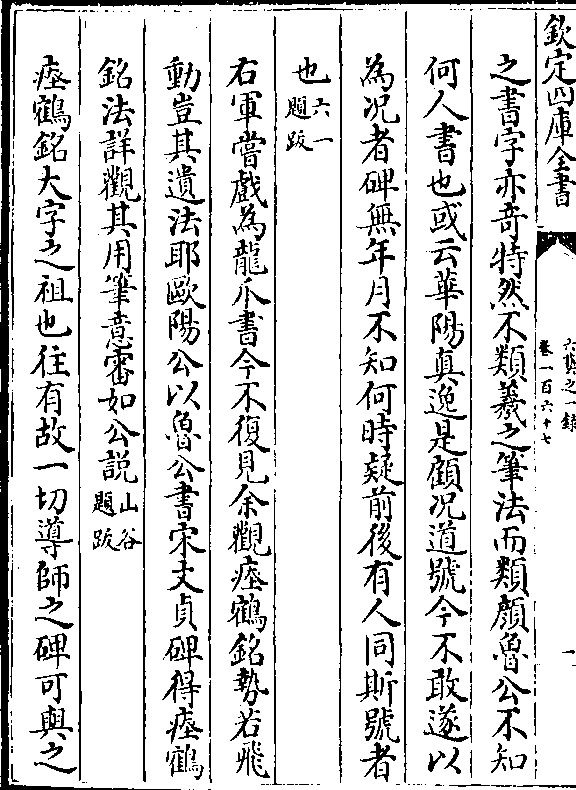 欽定四庫全書
六藝之一録
卷一百六十七
一
之書字亦竒特然不類羲之筆法而類顔魯公不知
何人書也或云華陽真逸是顧况道號今不敢遂以
為况者碑無年月不知何時疑前後有人同斯號者
也六一題跋
右軍嘗戲為龍爪書今不復見余觀瘞鶴銘勢若飛
動豈其遺法耶歐陽公以魯公書宋文貞碑得瘞鶴
銘法詳觀其用筆意審如公説山谷題跋
瘞鶴銘大字之祖也往有故一切導師之碑可與之